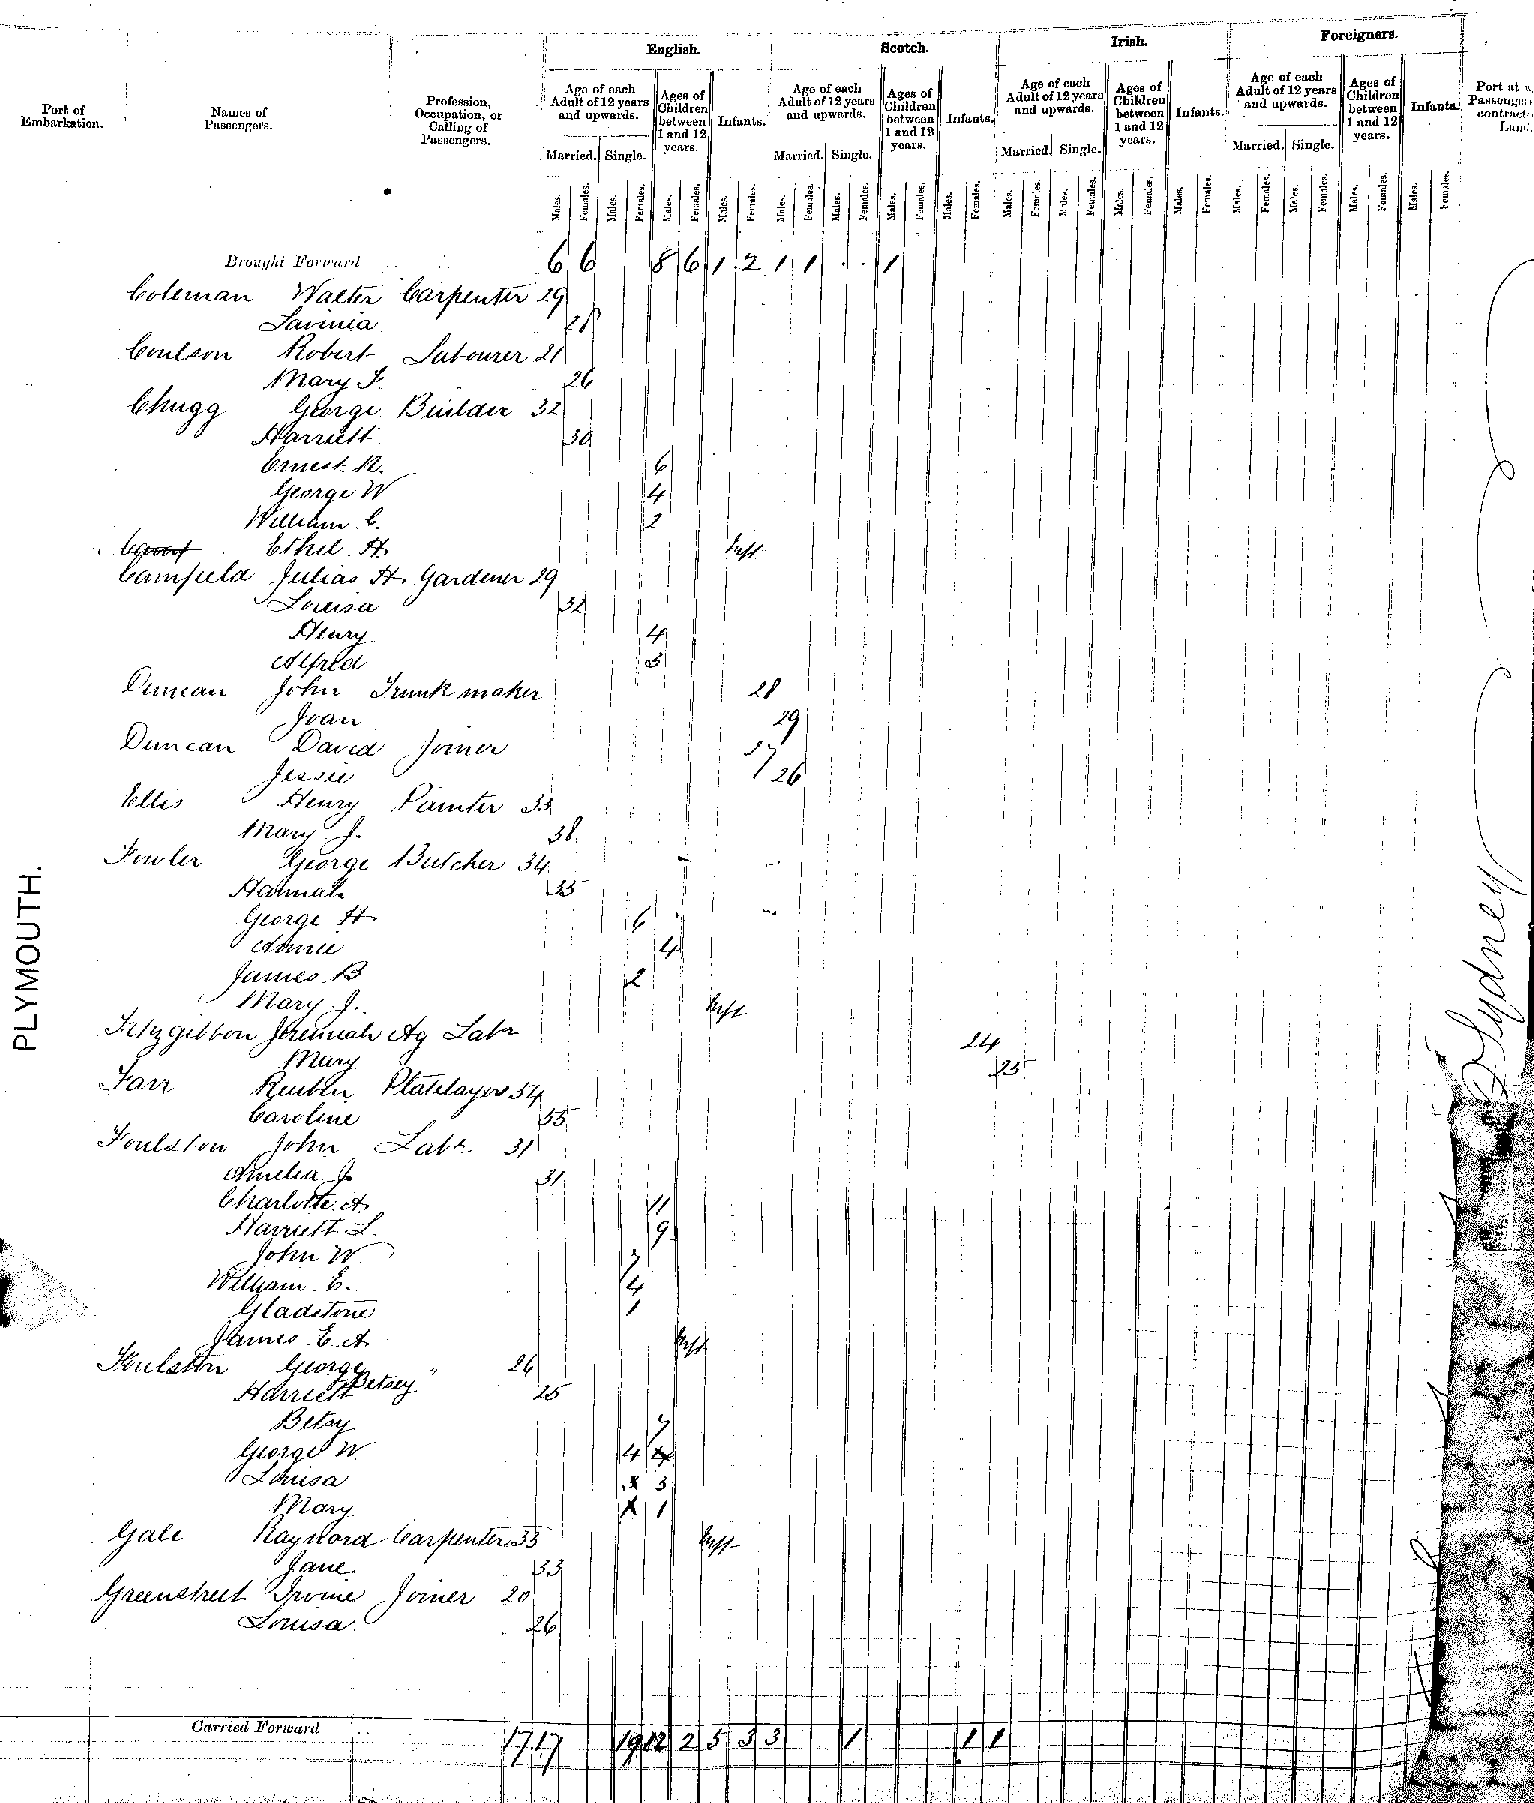 English. Scotch. Irish. Foreigners.
Port of Embarkation. Names of Passengers. Profession, Occupation, or Calling of Passengers.
Age of each Adult of 12 years and upwards. Ages of Children between 1 and 12 years. Infants. Age of each Adult of 12 years and upwards. Ages of Children between 1 and 12 years. Infants. Age of each Adult of 12 years and upwards. Ages of Children between 1 and 12 years. Infants. Age of each Adult of 12 years and upwards. Ages of Children between 1 and 12 years. Infants. Port at
Married. Single. Married. Single. Married. Single. Married. Single.
Males. Females. Males. Females. Males. Females. Males. Females. Males. Females. Males. Females. Males. Females. Males. Females. Males. Females. Males. Females. Males. Females. Males. Females. Males. Females. Males. Females. Males. Females. Males. Females.
Brought Forward 6 6 8 6 1 2 1 1 1
Coleman Walter Carpenter 29
Lavinia
Coulson Robert Labourer 21
Mary J. 26
Chugg George Builder 32
Harriett 30
Ernest R. 6
George W 4
William C. 2
Ethel H. Inft
Camfield Julias H. Gardener 29
Louisa 32
Henry 4
Alfred 3
Duncan John Trunk maker 28
Joan 29
Duncan David Joiner 27
Jessie 26
Ellis Henry Painter 33
Mary J. 38
Fowler George Butcher 34
Hannah 35
George H 6
Annie 4
James B 2
Mary J. Inft
Fitzgibbon Jeremiah Ag Labr 24
Mary 25
Farr Reuben Platelayer 54
Caroline 55
Foulston John Labr 31
Amelia J 31
Charlotte A 11
Harriett L. 9
John W 7
William E. 4
Gladstone 1
James E. A. Inft
Foulston George " 26
Harriett Betsey 25
Betsy 7
George W 4
Louisa 3
Mary 1
Gale Raynord Carpenter 35 Inft
Jane 33
Greenstreet Irvine Joiner 20
Louisa 26
Carried Forward 17 17 19 12 2 5 3 3 1 1 1
PLYMOUTH.
Sydney